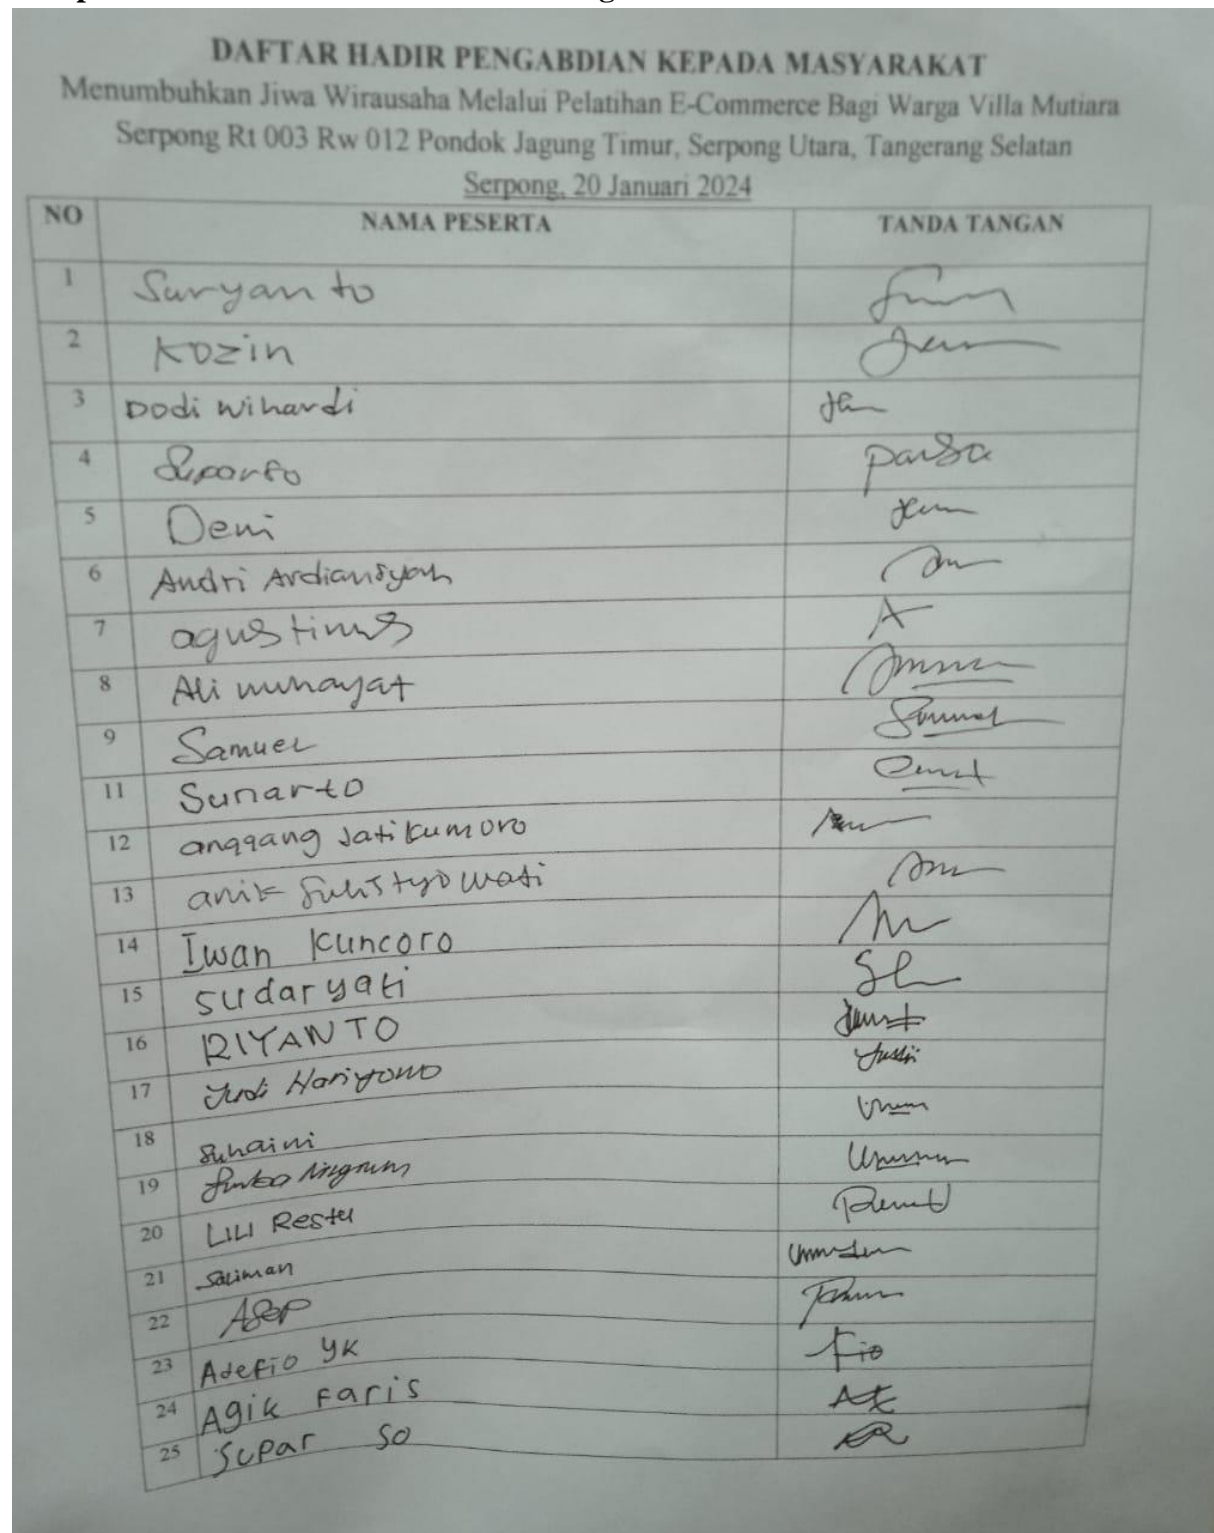 DAFTAR HADIR PENGABDIAN KEPADA MASYARAKAT
Menumbuhkan Jiwa Wirausaha Melalui Pelatihan E-Commerce Bagi Warga Villa Mutiara
Serpong Rt 003 Rw 012 Pondok Jagung Timur, Serpong Utara, Tangerang Selatan
Serpong, 20 Januari 2024
NO NAMA PESERTA TANDA TANGAN
1 Suryanto
2 Kozin
3 Dodi Wihardi
4
5 Deni
6 Andri Ardiansyah
7 agustinus A
8 Ali
9 Samuel
11 Sunarto
12 anggang Jati Kumoro
13 anik Sulistyowati
14 Iwan Kuncoro
15 sudaryati
16 RIYANTO
17 Yudi Hariyono
18 Suhaini
19
20 LILI Restu
21 Saliman
22 ASEP
23 Adefio YK Fio
24 Agik Faris
25 Supar so